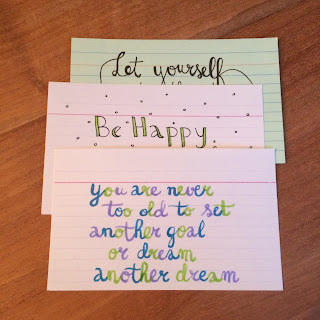 Let yourself
Be Happy
you are never
too old to set
another goal
or dream
another dream